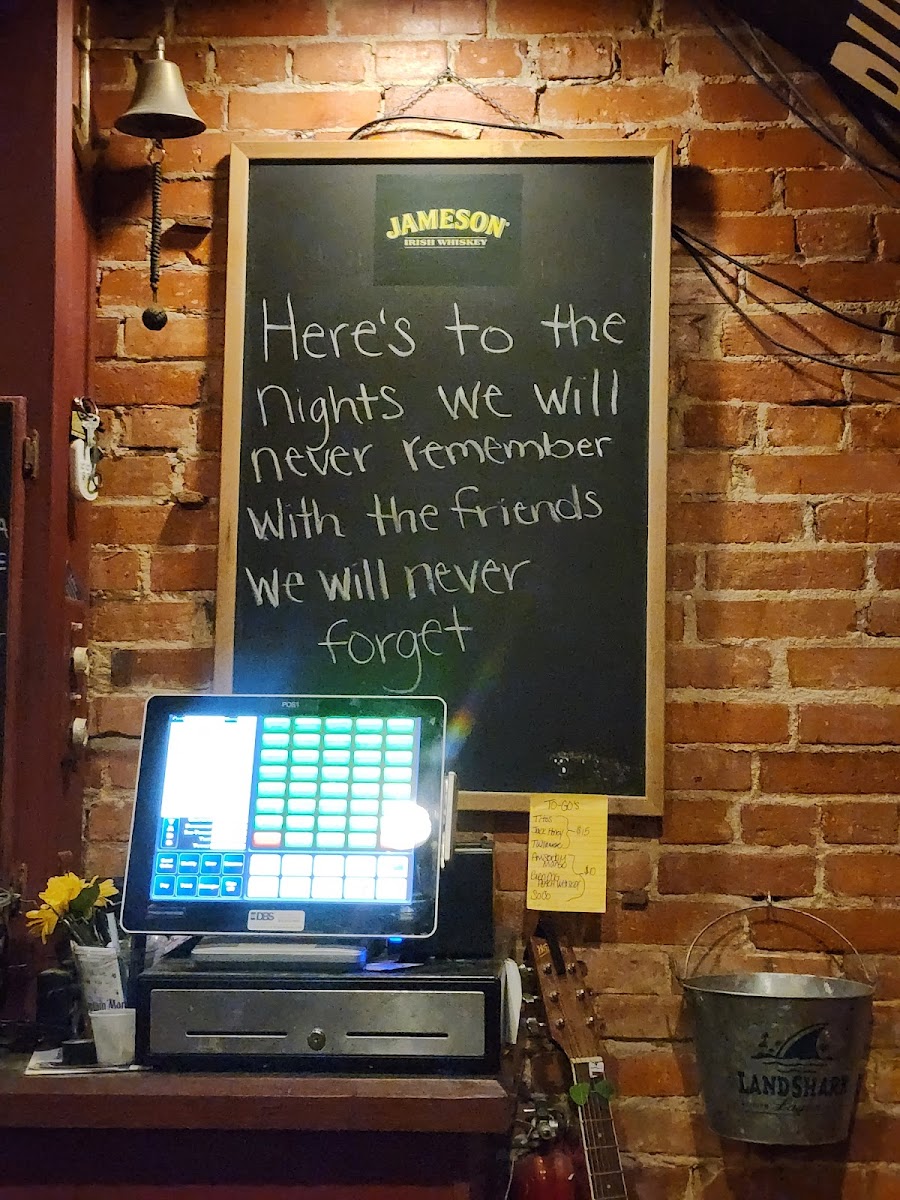 JAMESON
IRISH WHISKEY
Here's to the
nights we will
never remember
with the friends
we will never
forget
POS1
DBS
TO-GO'S
Titos
Jack Honey
$15
SoCo
LANDSHARK
Lager